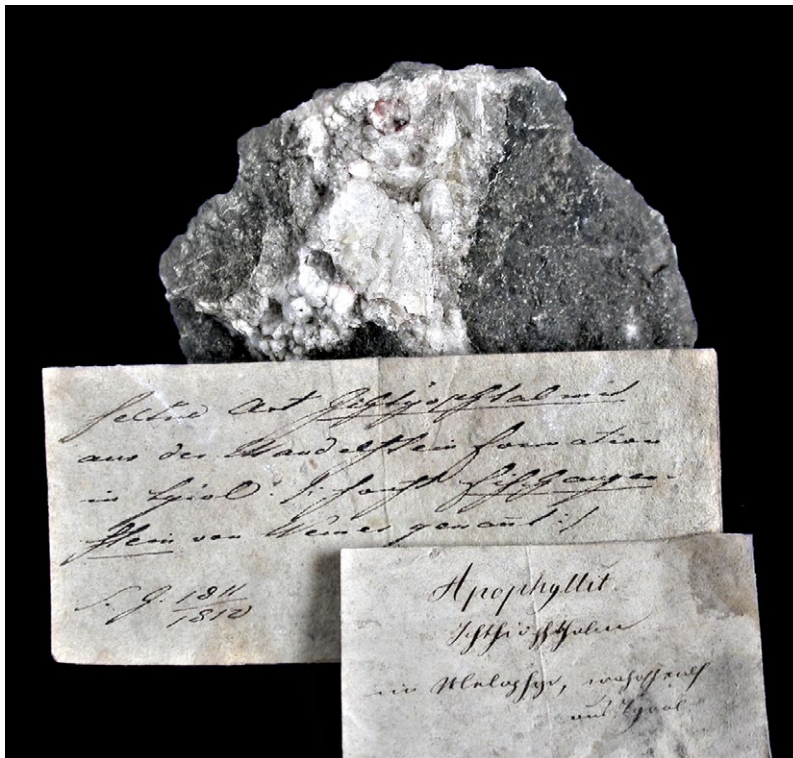 seltne Art Ichthyophtalmit
aus der Mandelstein formation
in Tyrol. /: sonst Fischaugen-
stein von Werner genañt :/
S. J. 1811
1812
Apophyllit.
Ichthiophthalm
in Melaphyr, wahrscheinl
aus Tyrol